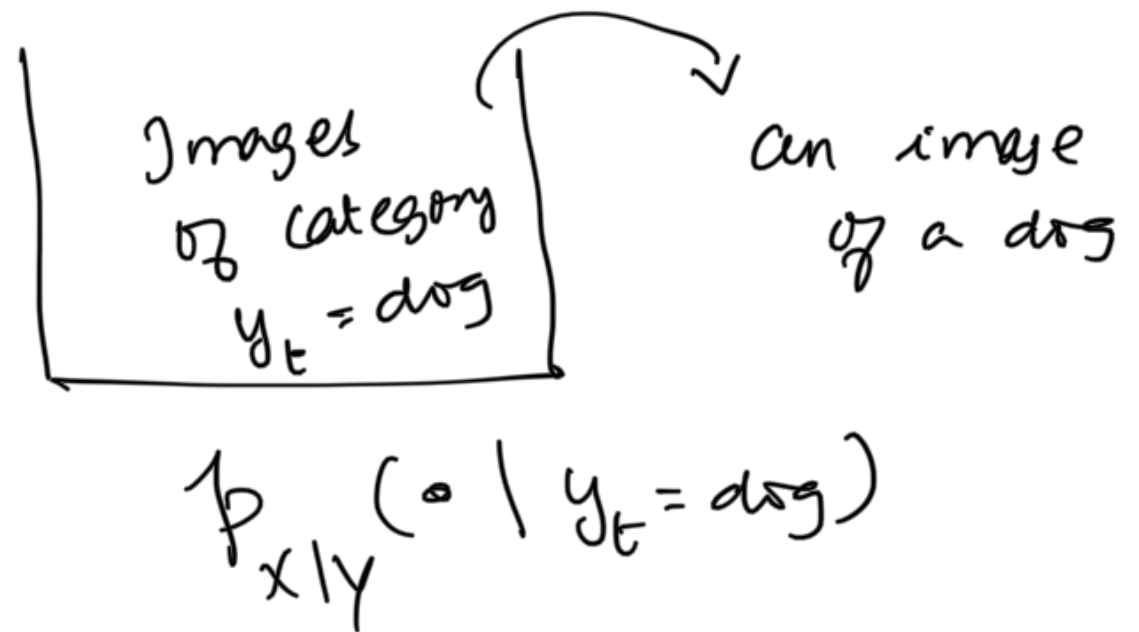 Images
of category
y_t = dog
an image
of a dog
p_{X|Y} (• | y_t = dog)